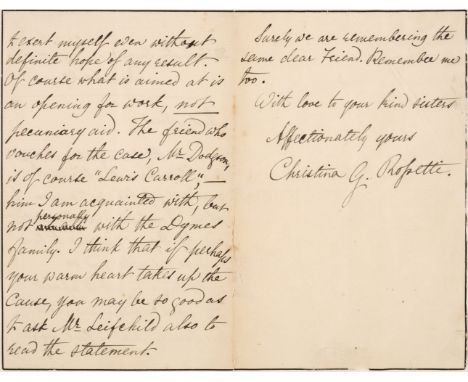 to exert myself even without
definite hope of any result.
Of course what is aimed at is
an opening for work, not
pecuniary aid. The friend who
vouches for the case, Mr. Dodgson,
is of course "Lewis Carroll", —
him I am acquainted with, but
not personally with the Dymes
family. I think that if perhaps
your warm heart takes up the
cause, you may be so good as
to ask Mr. Leifchild also to
read the statement.
Surely we are remembering the
same dear Friend. Remember me
too.
With love to your kind sisters
Affectionately yours
Christina G. Rossetti.